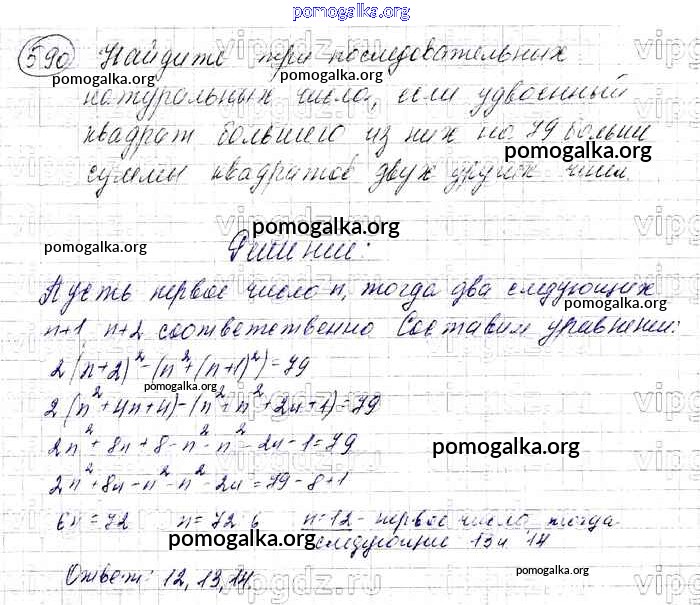 pomogalka.org
590 Найдите три последовательных
pomogalka.org pomogalka.org
натуральных числа, если удвоенный
квадрат большего из них на 79 больше
pomogalka.org
суммы квадратов двух других чисел.
pomogalka.org pomogalka.org
Решение:
Пусть первое число n, тогда два следующих
pomogalka.org
n+1, n+2 соответственно Составим уравнение:
2(n+2)²-(n²+(n+1)²)=79
pomogalka.org
2(n²+4n+4)-(n²+n²+2n+1)=79
2n²+8n+8-n²-n²-2n-1=79
pomogalka.org
2n²+8n-n²-n²-2n=79-8+1
6n=72 n=72:6 n=12-первое число, тогда
pomogalka.org pomogalka.org
следующие 13 и 14
Ответ: 12, 13, 14.
pomogalka.org